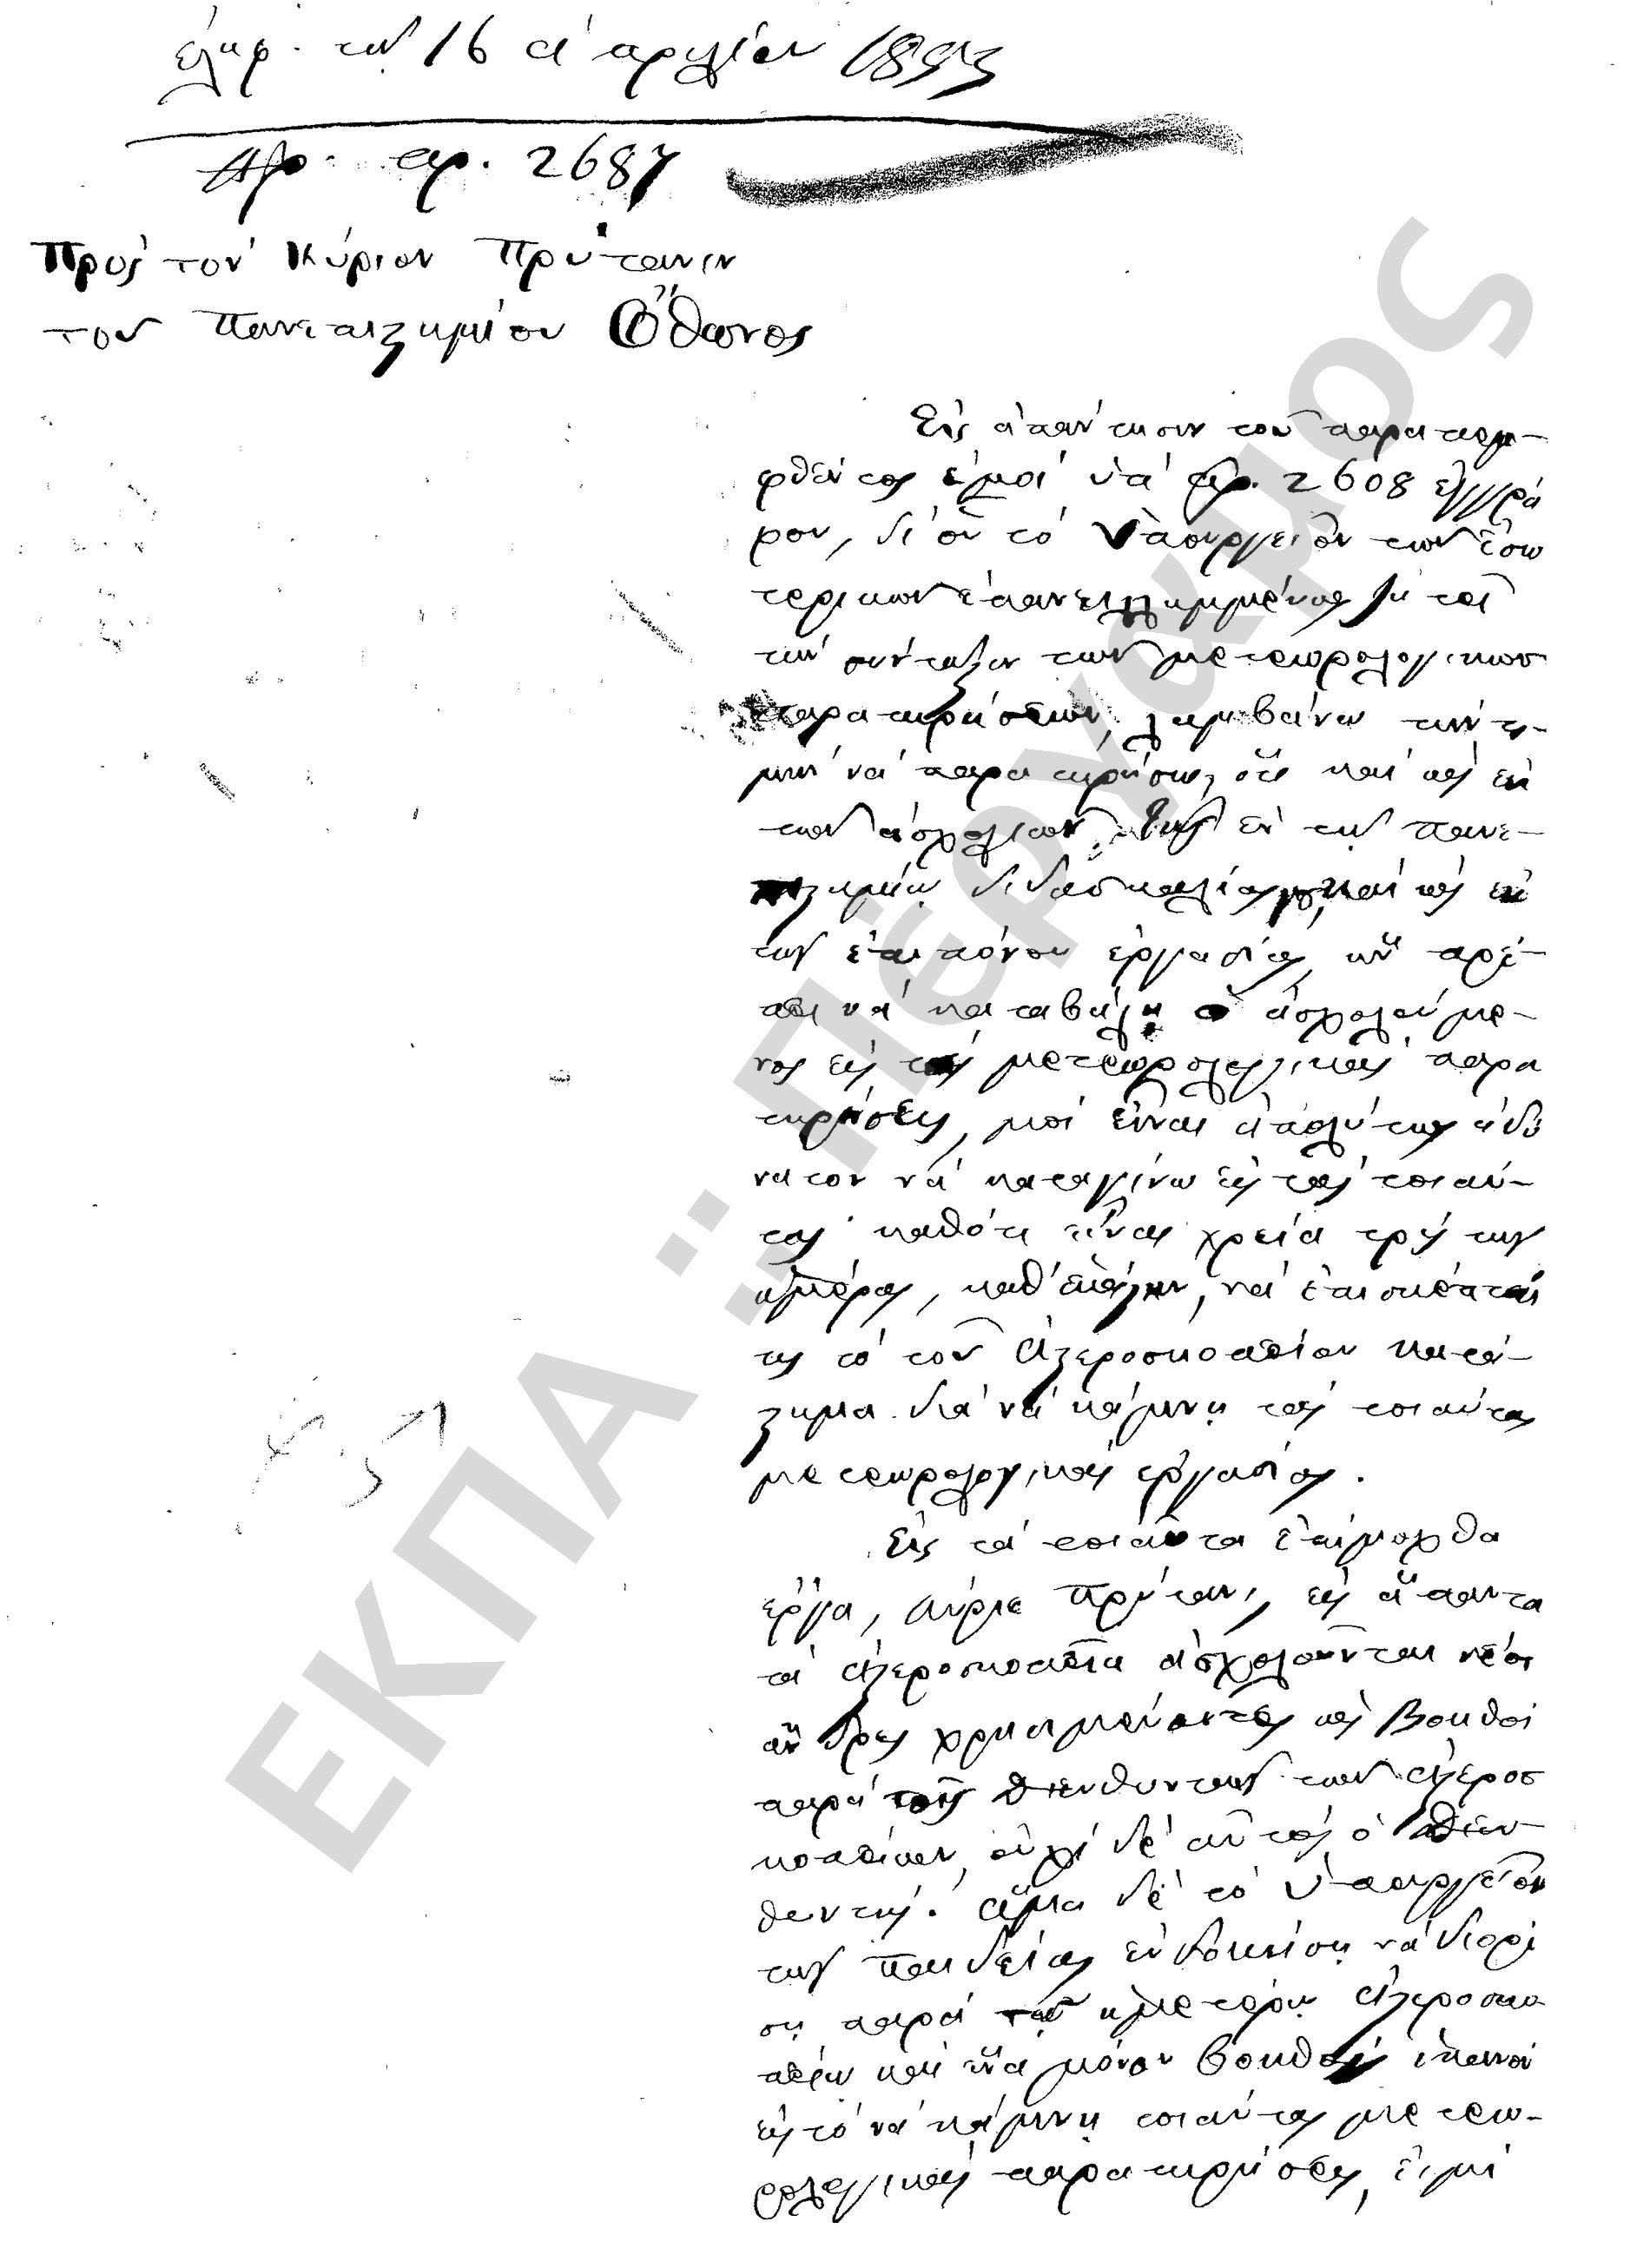 ἐλήφ. τῇ 16 Ἀπριλίου 1853
Ἀρ. πρ. 2687
Πρὸς τὸν Κύριον Πρύτανιν
τοῦ Πανεπιστημίου Ὄθωνος
Εἰς ἀπάντησιν τοῦ παραπεμ-
φθέντος ἐμοὶ ὑπ' ἀρ. 2608 ἐγγρά
φου, δι' οὗ τὸ Ὑπουργεῖον τῶν Ἐσω
τερικῶν ἐπανειλημμένως ζητεῖ
τὴν σύνταξιν τῶν μετεωρολογικῶν
παρατηρήσεων, λαμβάνω τὴν τι-
μὴν νὰ παρατηρήσω, ὅτι καὶ ὡς ἐκ
τῶν ἀσχολιῶν τῆς ἐν τῷ Πανε-
πιστημίῳ διδασκαλίας, καὶ ὡς ἐκ
τῆς ἐπιπόνου ἐργασίας, ἣν πρέ-
πει νὰ καταβάλῃ ὁ ἀσχολούμε-
νος εἰς τὰς μετεωρολογικὰς παρα
τηρήσεις, μοὶ εἶναι ἀπολύτως ἀδύ
νατον νὰ καταγίνω εἰς τὰς τοιαύ-
τας· καθότι εἶναι χρεία τρὶς τῆς
ἡμέρας, καθ' ἑκάστην, νὰ ἐπισκέπτεταί
τις τὸ τοῦ Ἀστεροσκοπείου κατά-
στημα διὰ νὰ κάμνῃ τὰς τοιαύτας
μετεωρολογικὰς ἐργασίας.
Εἰς τὰ τοιαῦτα ἐπίμοχθα
ἔργα, κύριε Πρύτανι, εἰς ἅπαντα
τὰ Ἀστεροσκοπεῖα ἀσχολοῦνται νέοι
ἄνδρες χρησιμεύοντες ὡς Βοηθοὶ
παρὰ τοῖς διευθυνταῖς τῶν Ἀστεροσ
κοπείων, οὐχὶ δὲ αὐτὸς ὁ διευ-
θυντής. Ἅμα δὲ τὸ Ὑπουργεῖον
τῆς Παιδείας εὐδοκήσῃ νὰ διορί
σῃ παρὰ τῷ ἡμετέρῳ Ἀστεροσκο
πείῳ καὶ ἕνα μόνον βοηθὸν ἱκανὸν
εἰς τὸ νὰ κάμνῃ τοιαύτας μετεω-
ρολογικὰς παρατηρήσεις, εἰμὶ
ΕΚΠΑ : Πέργαμος